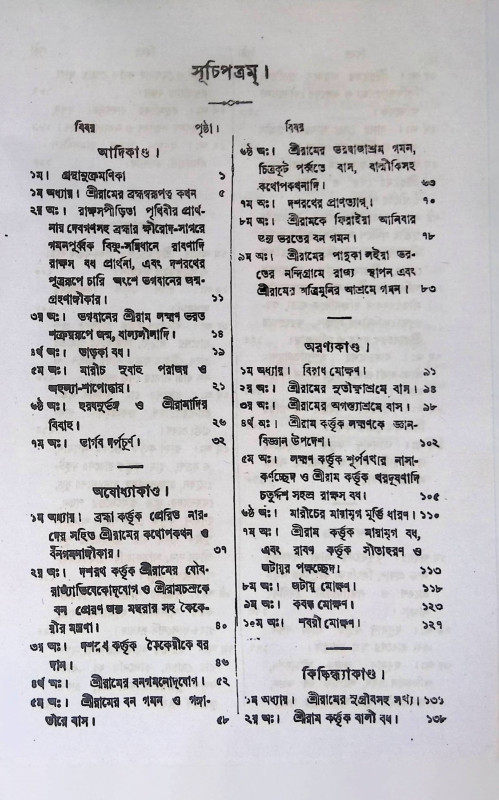 সূচিপত্রম্।
বিষয় পৃষ্ঠা।
আদিকাণ্ড।
১ম। গ্রন্থানুক্রমণিকা ১
১ম অধ্যায়। শ্রীরামের ব্রহ্মস্বরূপত্ব কথন ৫
২য় অঃ। রাক্ষসপীড়িতা পৃথিবীর প্রার্থ-
নায় দেবগণসহ ব্রহ্মার ক্ষীরোদ-সাগরে
গমনপূর্ব্বক বিষ্ণু-সন্নিধানে রাবণাদি
রাক্ষস বধ প্রার্থনা, এবং দশরথের
পুত্ররূপে চারি অংশে ভগবানের জন্ম-
গ্রহণাঙ্গীকার। ১১
৩য় অঃ। ভগবানের শ্রীরাম লক্ষ্মণ ভরত
শত্রুঘ্নরূপে জন্ম, বাল্যলীলাদি। ১৪
৪র্থ অঃ। তাড়কা বধ। ১৯
৫ম অঃ। মারীচ সুবাহু পরাজয় ও
অহল্যা-শাপোদ্ধার। ২১
৬ষ্ঠ অঃ। হরধনুর্ভঙ্গ ও শ্রীরামাদির
বিবাহ। ২৬
৭ম অঃ। ভার্গব দর্পচূর্ণ। ৩২
অযোধ্যাকাণ্ড।
১ম অধ্যায়। ব্রহ্মা কর্ত্তৃক প্রেরিত নার-
দের সহিত শ্রীরামের কথোপকথন ও
বনগমনাঙ্গীকার। ৩৭
২য় অঃ। দশরথ কর্ত্তৃক শ্রীরামের যৌব-
রাজ্যাভিষেকোদ্যোগ ও শ্রীরামচন্দ্রকে
বন প্রেরণ জন্য মন্থরার সহ কৈকে-
য়ীর মন্ত্রণা। ৪০
৩য় অঃ। দশরথ কর্ত্তৃক কৈকেয়ীকে বর
দান। ৪৬
৪র্থ অঃ। শ্রীরামের বনগমনোদ্যোগ। ৫২
৫ম অঃ। শ্রীরামের বন গমন ও গঙ্গা-
তীরে বাস। ৫৮
বিষয়
৬ষ্ঠ অঃ। শ্রীরামের ভরদ্বাজাশ্রম গমন,
চিত্রকূট পর্ব্বতে বাস, বাল্মীকিসহ
কথোপকথনাদি। ৬৩
৭ম অঃ। দশরথের প্রাণত্যাগ। ৭০
৮ম অঃ। শ্রীরামকে ফিরাইয়া আনিবার
জন্য ভরতের বন গমন। ৭৮
৯ম অঃ। শ্রীরামের পাদুকা লইয়া ভর-
তের নন্দিগ্রামে রাজ্য স্থাপন এবং
শ্রীরামের অত্রিমুনির আশ্রমে গমন। ৮৩
অরণ্যকাণ্ড।
১ম অধ্যায়। বিরাধ মোক্ষণ। ৯১
২য় অঃ। শ্রীরামের সুতীক্ষ্ণাশ্রমে বাস। ৯৪
৩য় অঃ। শ্রীরামের অগস্ত্যাশ্রমে বাস। ৯৮
৪র্থ অঃ। শ্রীরাম কর্ত্তৃক লক্ষ্মণকে জ্ঞান-
বিজ্ঞান উপদেশ। ১০২
৫ম অঃ। লক্ষ্মণ কর্ত্তৃক শূর্পণখার নাসা-
কর্ণচ্ছেদ ও শ্রীরাম কর্ত্তৃক খরদূষণাদি
চতুর্দ্দশ সহস্র রাক্ষস বধ। ১০৫
৬ষ্ঠ অঃ। মারীচের মায়ামৃগ মূর্ত্তি ধারণ। ১১০
৭ম অঃ। শ্রীরাম কর্ত্তৃক মায়ামৃগ বধ,
এবং রাবণ কর্ত্তৃক সীতাহরণ ও
জটায়ুর পক্ষচ্ছেদ। ১১৩
৮ম অঃ। জটায়ু মোক্ষণ। ১১৮
৯ম অঃ। কবন্ধ মোক্ষণ। ১২৩
১০ম অঃ। শবরী মোক্ষণ। ১২৭
কিষ্কিন্ধ্যাকাণ্ড।
১ম অধ্যায়। শ্রীরামের সুগ্রীবসহ সখ্য। ১৩১
২য় অঃ। শ্রীরাম কর্ত্তৃক বালী বধ। ১৩৮